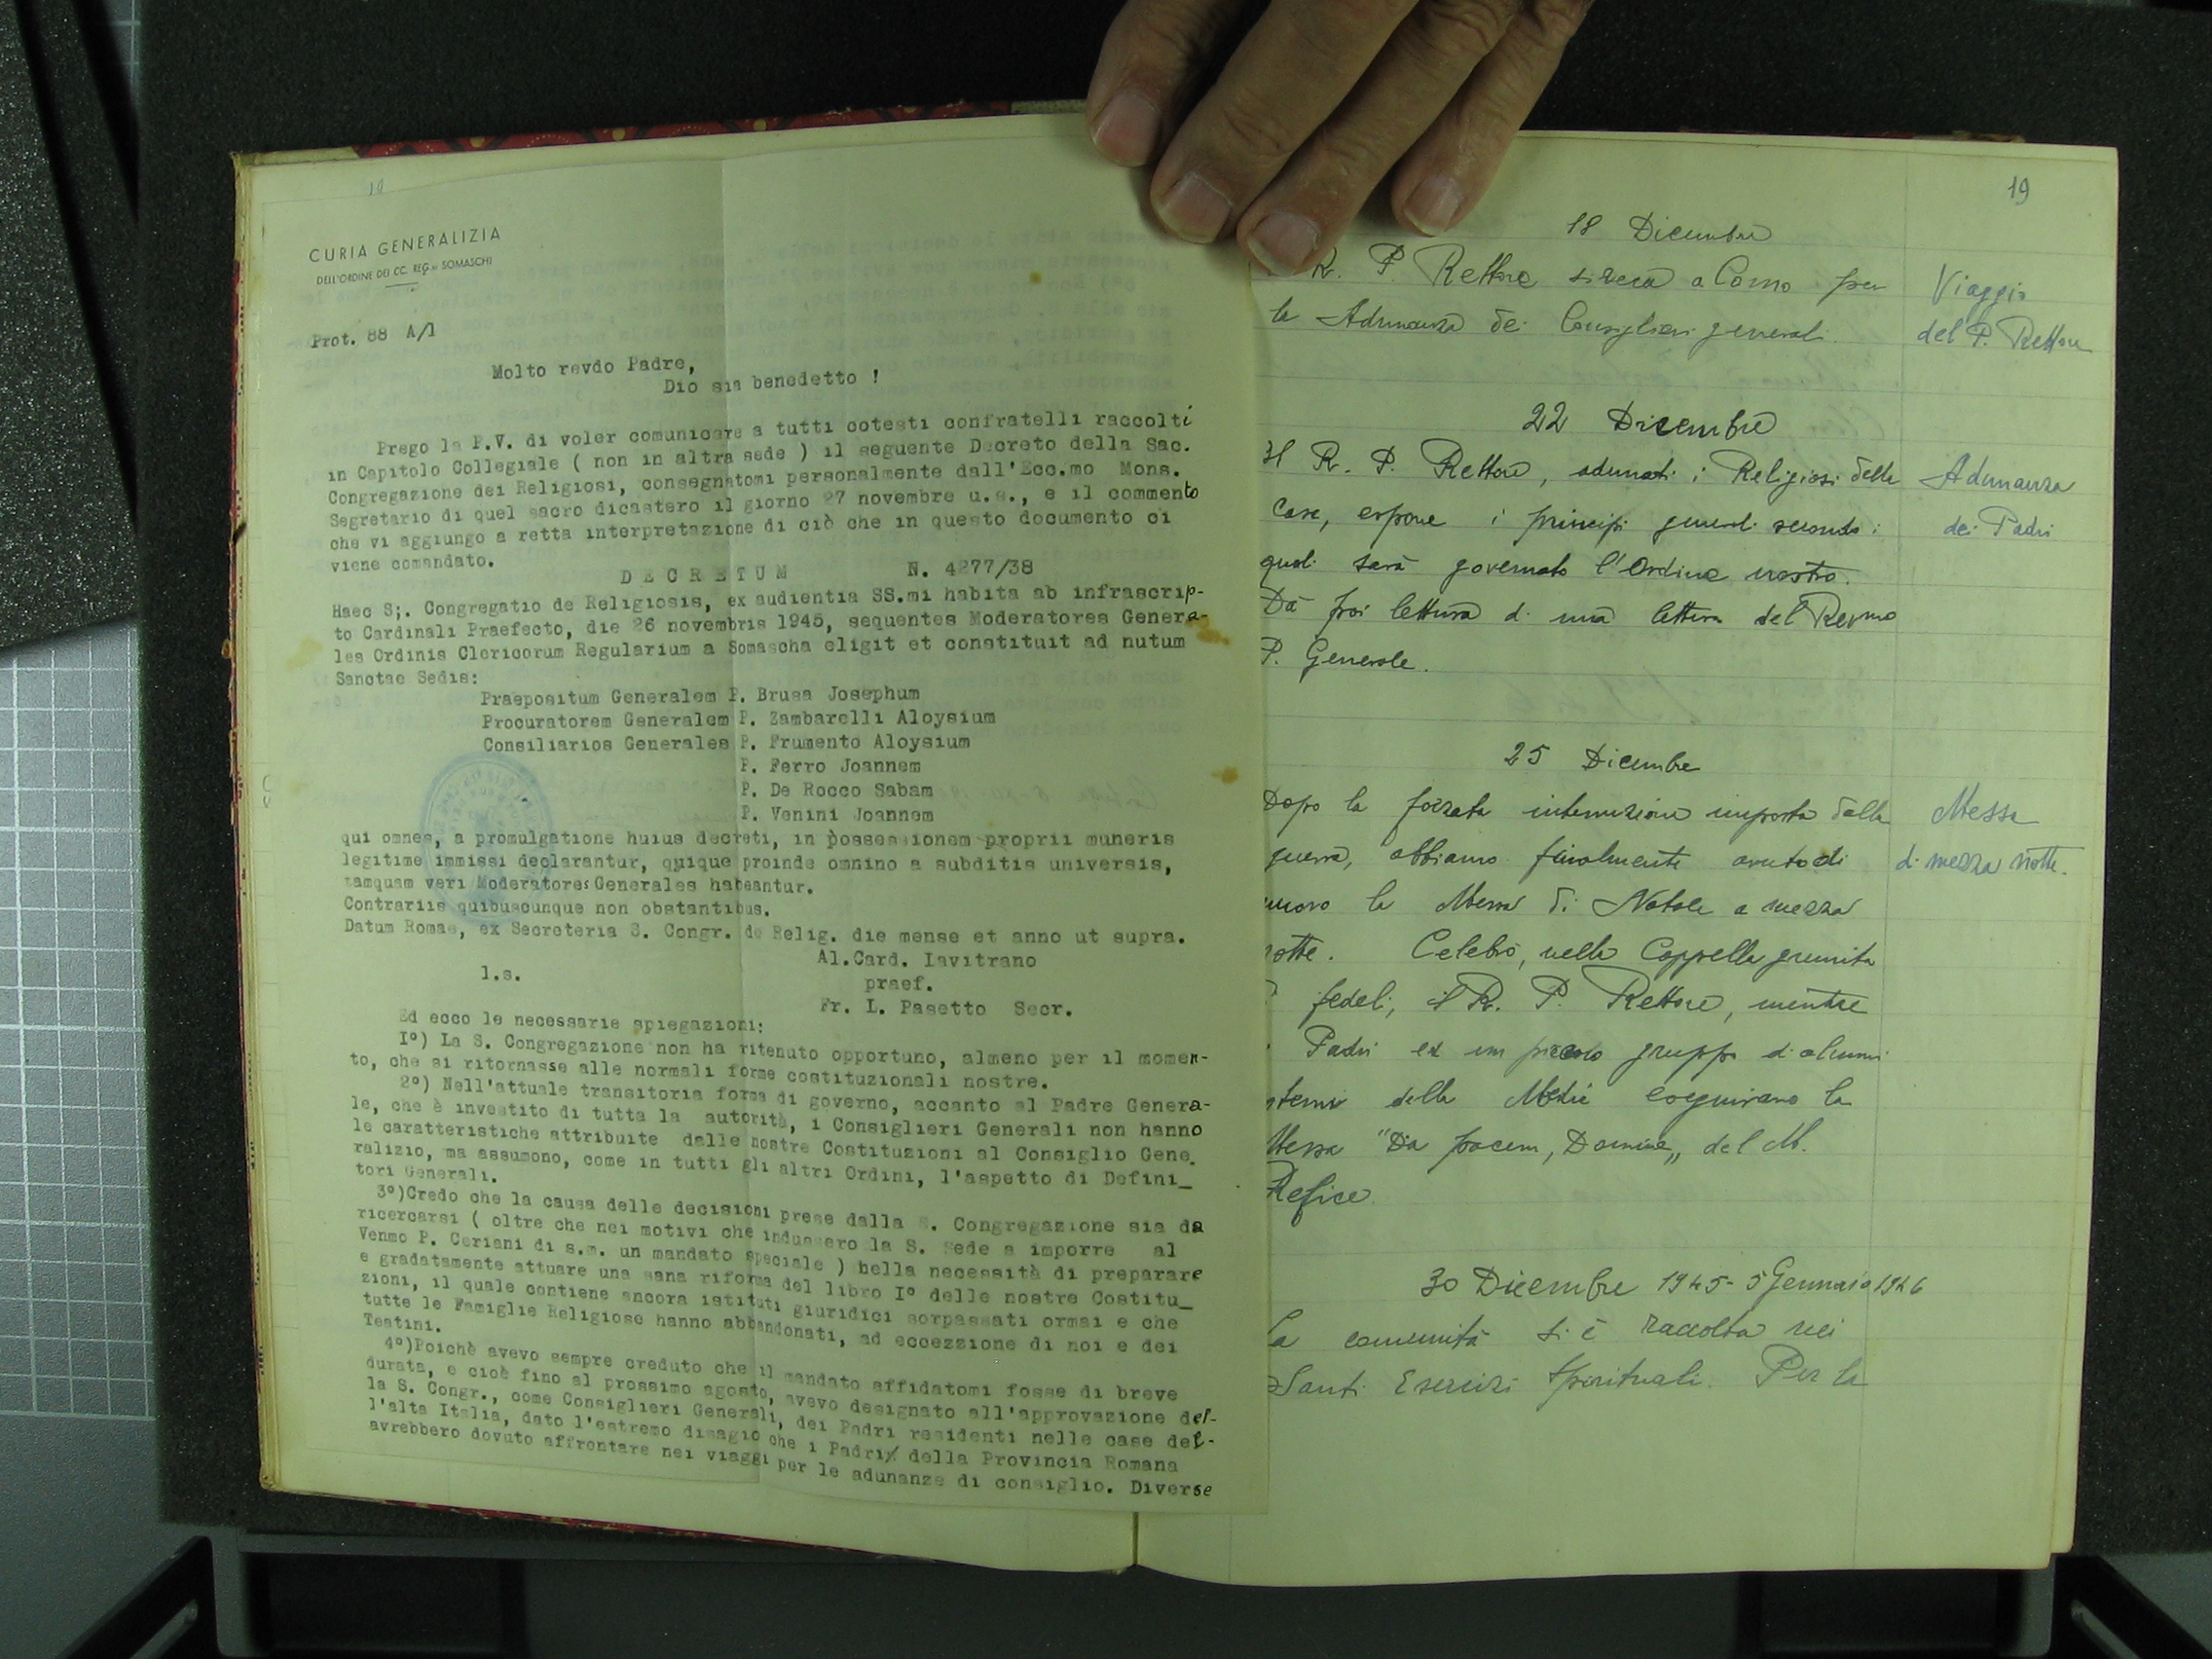 10
CURIA GENERALIZIA
DELL'ORDINE DEI CC. REG. SOMASCHI
Prot. 88 A/1
Molto revdo Padre,
Dio sia benedetto !
Prego la P.V. di voler comunicare a tutti cotesti confratelli raccolti
in Capitolo Collegiale ( non in altra sede ) il seguente Decreto della Sac.
Congregazione dei Religiosi, consegnatomi personalmente dall'Ecc.mo Mons.
Segretario di quel sacro dicastero il giorno 27 novembre u.s., e il commento
che vi aggiungo a retta interpretazione di ciò che in questo documento ci
viene comandato.
DECRETUM N. 4277/38
Haec S;. Congregatio de Religiosis, ex audientia SS.mi habita ab infrascrip-
to Cardinali Praefecto, die 26 novembris 1945, sequentes Moderatores Genera-
les Ordinis Clericorum Regularium a Somascha eligit et constituit ad nutum
Sanctae Sedis:
Praepositum Generalem P. Brusa Josephum
Procuratorem Generalem P. Zambarelli Aloysium
Consiliarios Generales P. Frumento Aloysium
P. Ferro Joannem
P. De Rocco Sabam
P. Venini Joannem
qui omnes, a promulgatione huius decreti, in possessionem proprii muneris
legitime immissi declarantur, quique proinde omnino a subditis universis,
tamquam veri Moderatores Generales habeantur.
Contrariis quibuscunque non obstantibus.
Datum Romae, ex Secreteria S. Congr. de Relig. die mense et anno ut supra.
Al.Card. Lavitrano
l.s.
praef.
Fr. L. Pasetto Secr.
Ed ecco le necessarie spiegazioni:
I°) La S. Congregazione non ha ritenuto opportuno, almeno per il momen-
to, che si ritornasse alle normali forme costituzionali nostre.
2°) Nell'attuale transitoria forma di governo, accanto al Padre Genera-
le, che è investito di tutta la autorità, i Consiglieri Generali non hanno
le caratteristiche attribuite dalle nostre Costituzioni al Consiglio Gene_
ralizio, ma assumono, come in tutti gli altri Ordini, l'aspetto di Defini_
tori Generali.
3°)Credo che la causa delle decisioni prese dalla S. Congregazione sia da
ricercarsi ( oltre che nei motivi che indussero la S. Sede a imporre al
Venmo P. Ceriani di s.m. un mandato speciale ) hella necessità di preparare
e gradatamente attuare una sana riforma del libro I° delle nostre Costitu_
zioni, il quale contiene ancora istituti giuridici sorpassati ormai e che
tutte le Famiglie Religiose hanno abbandonati, ad eccezzione di noi e dei
Teatini.
4°)Poichè avevo sempre creduto che il mandato affidatomi fosse di breve
durata, e cioè fino al prossimo agosto, avevo designato all'approvazione del-
la S. Congr., come Consiglieri Generali, dei Padri residenti nelle case del-
l'alta Italia, dato l'estremo disagio che i Padri della Provincia Romana
avrebbero dovuto affrontare nei viaggi per le adunanze di consiglio. Diverse
19
18 Dicembre
R. P. Rettore si reca a Como per
la Adunanza dei Consiglieri generali.
Viaggio
del P. Rettore
22 Dicembre
Il R. P. Rettore, adunati i Religiosi della
Casa, espone i principi generali secondo i
quali sarà governato l'Ordine nostro.
Dà poi lettura di una lettera del Rev.mo
P. Generale.
Adunanza
dei Padri
25 Dicembre
Dopo la forzata interruzione imposta dalla
guerra, abbiamo finalmente avuto di
nuovo la Messa di Natale a mezza
notte. Celebrò, nella Cappella gremita
fedeli, il R. P. Rettore, mentre
Padri ed un piccolo gruppo di alunni
della Media eseguirano la
Messa "Da pacem, Domine„ del M.
Refice.
Messa
di mezza notte.
30 Dicembre 1945 - 5 Gennaio 1946
La comunità si è raccolta nei
Santi Esercizi Spirituali. Per la